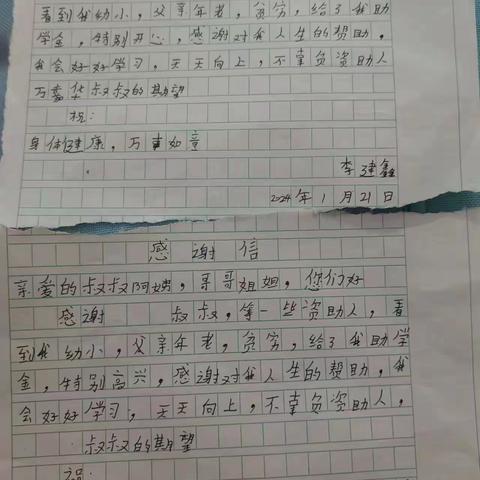 看到我幼小，父亲年老，贫穷，给了我助
学金，特别开心，感谢对我人生的赞助，
我会好好学习，天天向上，不辜负资助人
万嘉华叔叔的期望
祝：
身体健康，万事如意
李建鑫
2024年1月21日
感谢信
亲爱的叔叔阿姨，哥哥姐姐，您们好
感谢 叔叔，等一些资助人，看
到我幼小，父亲年老，贫穷，给了我助学
金，特别高兴，感谢对我人生的赞助，我
会好好学习，天天向上，不辜负资助人，
叔叔的期望
祝：